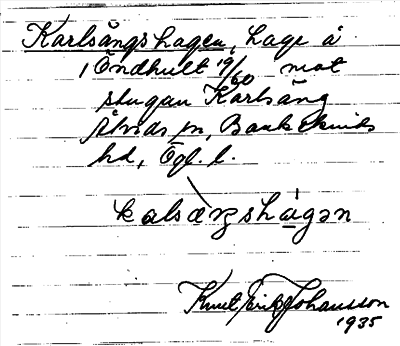 Karlsängshagen, hage å
Öndhult 19/60 mot
stugan Karlsäng
Åtvids sn, Bankekinds
hd, Ögl. l.
kalsæŋshàgən
Knut Erik Johansson
1935